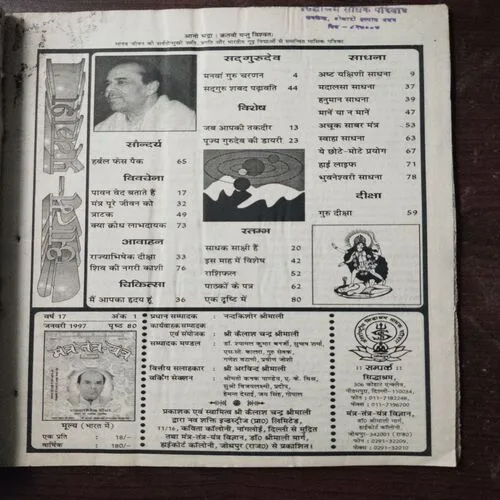 सिद्धाश्रम साधक परिवार
आनो भद्रा: क्रतवो यन्तु विश्वत:
मानव जीवन की सर्वतोन्मुखी उन्नति, प्रगति और भारतीय गूढ़ विद्याओं से समन्वित मासिक पत्रिका
सद्गुरुदेव
मनवां गुरु चरणन 4
सद्गुरु शबद पढ़ावति 44
विशेष
जब आपकी तकदीर 13
पूज्य गुरुदेव की डायरी 23
साधना
अष्ट यक्षिणी साधना 9
मदालसा साधना 37
हनुमान साधना 39
मानें या न मानें 47
अचूक साबर मंत्र 53
स्वाहा साधना 63
ये छोटे-मोटे प्रयोग 67
हाई लाइफ 71
भुवनेश्वरी साधना 78
दीक्षा
गुरु दीक्षा 59
सौन्दर्य
हर्बल फेस पैक 65
विवचेना
पावन वेद बताते हैं 17
मंत्र पूरे जीवन को 32
त्राटक 49
क्या क्रोध लाभदायक 73
आवाहन
राज्याभिषेक दीक्षा 33
शिव की नगरी काशी 76
चिकित्सा
मैं आपका हृदय हूं 36
स्तम्भ
साधक साक्षी हैं 20
इस माह में विशेष 42
राशिफल 52
पाठकों के पत्र 62
एक दृष्टि में 80
वर्ष 17 अंक 1
जनवरी 1997 पृष्ठ 80
मंत्र-तंत्र-यंत्र
मूल्य (भारत में)
एक प्रति : 18/-
वार्षिक 180/-
प्रधान सम्पादक : नन्दकिशोर श्रीमाली
कार्यवाहक सम्पादक
एवं संयोजक : श्री कैलाश चन्द्र श्रीमाली
सम्पादक मण्डल : डॉ. श्यामल कुमार बनर्जी, सुभाष शर्मा,
एस.के. कालरा, गुरु सेवक,
गणेश वटाणी, प्रवीण जोशी
वित्तीय सलाहकार : श्री अरविन्द श्रीमाली
वर्किंग सेक्शन : श्रीमती कनक पाण्डेय, ए. के. मिश्र,
हेमन्त देसाई, जय सिंह, गोपाल
प्रकाशक एवं स्वामित्व श्री कैलाश चन्द्र श्रीमाली
द्वारा नव शक्ति इन्डस्ट्रीज (प्रा0) लिमिटेड,
11/16, कविता कॉलोनी, नांगलोई, दिल्ली से मुद्रित
तथा मंत्र-तंत्र-यंत्र विज्ञान, डॉ0 श्रीमाली मार्ग,
हाईकोर्ट कॉलोनी, जोधपुर (राज0) से प्रकाशित।
:: सम्पर्क ::
सिद्धाश्रम,
306 कोहाट एन्क्लेव,
पीतमपुरा, दिल्ली-110034,
फोन : 011-7182248,
फैक्स : 011-7196700
मंत्र-तंत्र-यंत्र विज्ञान,
डॉ0 श्रीमाली मार्ग,
हाईकोर्ट कॉलोनी,
जोधपुर-342001 (राज0)
फोन : 0291-32209
फैक्स : 0291-32010